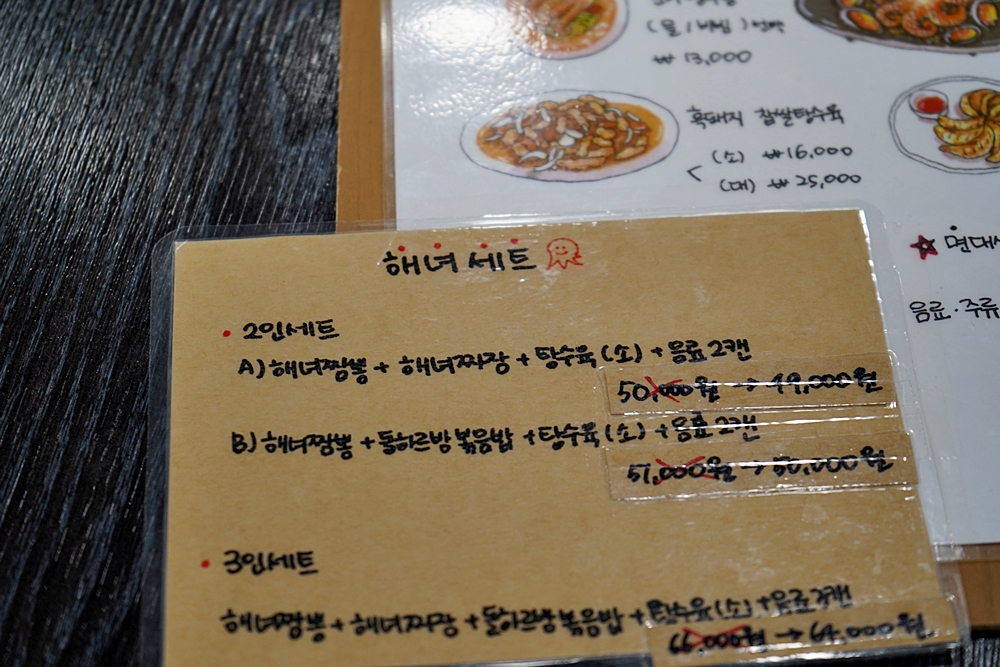 (물/비빔)
₩ 13,000
흑돼지 찹쌀탕수육
(소) ₩16,000
(대) ₩ 25,000
음료·주류
해녀 세트
2인세트
A) 해녀짬뽕 + 해녀짜장 + 탕수육(소) + 음료 2캔
50,000원 → 49,000원
B) 해녀짬뽕 + 돌하르방볶음밥 + 탕수육(소) + 음료 2캔
51,000원 → 50,000원
3인세트
해녀짬뽕 + 해녀짜장 + 돌하르방볶음밥 + 탕수육(소) + 음료 3캔
66,000원 → 64,000원